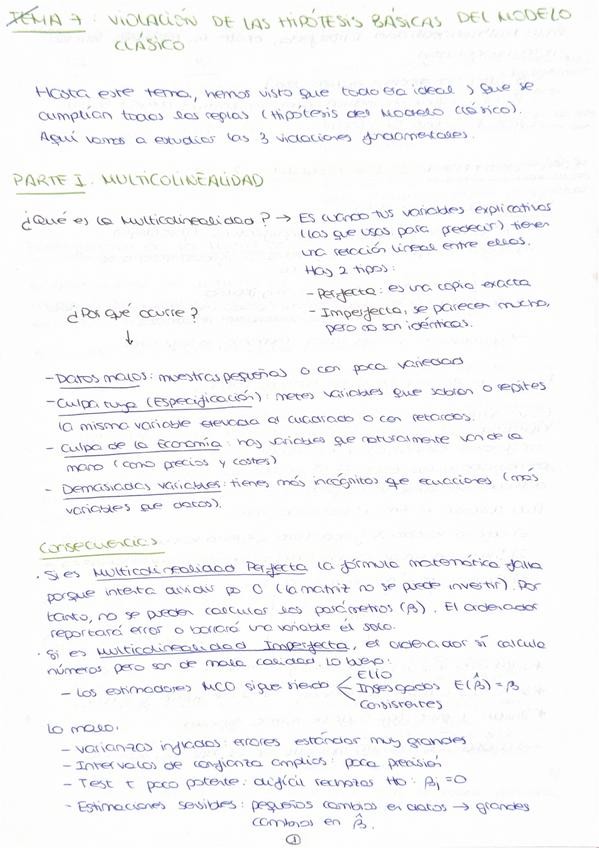 TEMA 7: VIOLACIÓN DE LAS HIPÓTESIS BÁSICAS DEL MODELO
CLÁSICO
Hasta este tema, hemos visto que todo era ideal y que se
cumplían todas las reglas (Hipótesis del Modelo Clásico).
Aquí vamos a estudiar las 3 violaciones fundamentales.
PARTE I. MULTICOLINEALIDAD
¿Qué es la Multicolinealidad? → Es cuando tus variables explicativas
(las que usas para predecir) tienen
una relación lineal entre ellas.
Hay 2 tipos:
- Perfecta: es una copia exacta
¿Por qué ocurre? - Imperfecta, se parecen mucho,
pero no son idénticas.
↓
- Datos malos: muestras pequeñas o con poca variedad
- Culpa tuya (Especificación): metes variables que sobran o repites
la misma variable elevada al cuadrado o con retardos.
- Culpa de la Economía: hay variables que naturalmente van de la
mano (como precios y costes)
- Demasiadas variables: tienes más incógnitas que ecuaciones (más
variables que datos).
Consecuencias
· Si es Multicolinealidad Perfecta la fórmula matemática falla
porque intenta dividir po 0 (la matriz no se puede invertir). Por
tanto, no se pueden calcular los parámetros (β). El ordenador
reportará error o borrará una variable él solo.
· Si es Multicolinealidad Imperfecta, el ordenador sí calcula
números pero son de mala calidad. Lo bueno:
- Los estimadores MCO sigue siendo ELIO
Insesgados E(β̂) = β
Consistentes
Lo malo:
- Varianzas infladas: errores estándar muy grandes
- Intervalos de confianza amplios: poca precisión
- Test t poco potente: difícil rechazar H0: β1 = 0
- Estimaciones sensibles: pequeños cambios en datos → grandes
cambios en β̂.
1